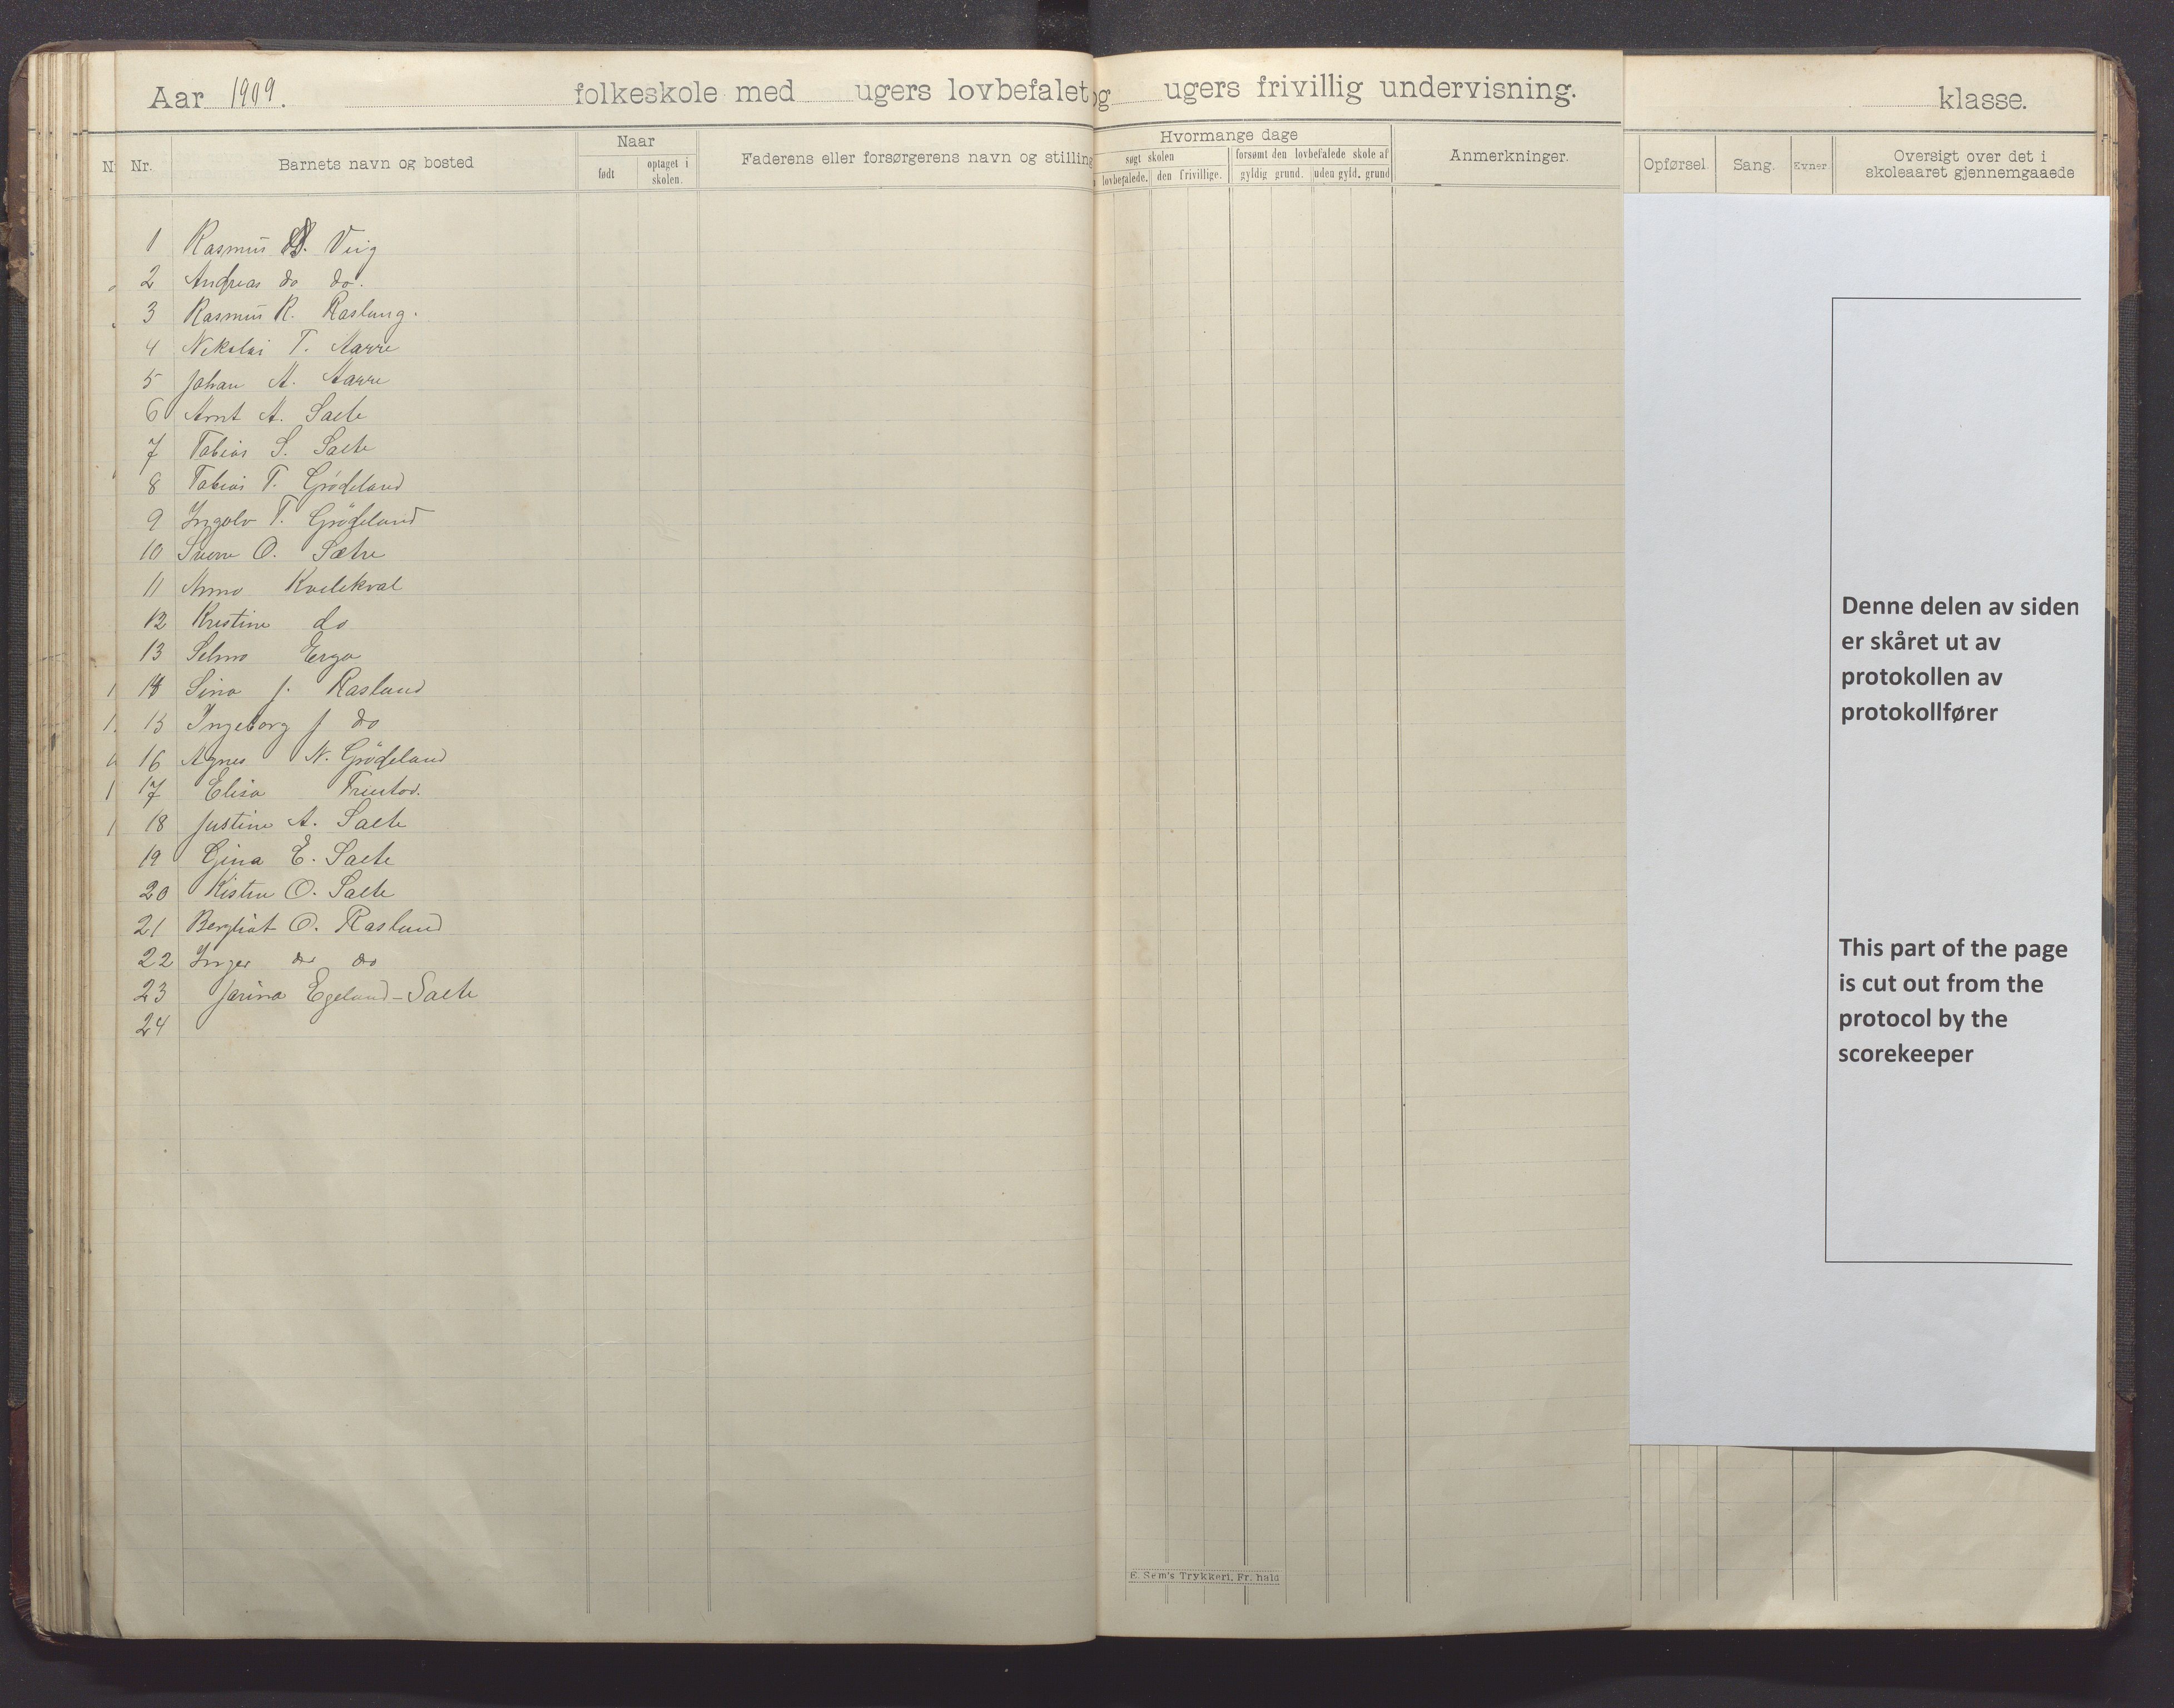 Aar 1909. folkeskole med ugers lovbefalet og ugers frivillig undervisning. klasse.
Nr. Barnets navn og bosted Naar født optaget i skolen. Faderens eller forsørgerens navn og stilling
Hvormange dage søgt skolen lovbefalede. den frivillige. forsømt den lovbefalede skole af gyldig grund. uden gyld. grund Anmerkninger.
Opførsel. Sang. Evner. Oversigt over det i skoleaaret gjennemgaaede
1 Rasmus Vig
2 Andreas do do.
3 Rasmus R. Raslung.
4 Nekolai T. Aarre
5 Johan A. Aarre
6 Arnt A. Salte
7 Tobias S. Salte
8 Tobias T. Grödeland
9 Ingolv T. Grödeland
10 Sverre O. Sætre
11 Anna Kvilekval
12 Kristine do
13 Selma Erga
14 Sina J. Rasland
15 Ingeborg J do
16 Agnes N. Grödeland
17 Elisa
18 Justine A. Salte
19 Gina E. Salte
20 Kisten O. Salte
21 Bergliot O. Rasland
22 Inger do do
23 Jarina Egeland-Salte
24
E. Sem's Trykkeri, Fr. hald
Denne delen av siden
er skåret ut av
protokollen av
protokollfører
This part of the page
is cut out from the
protocol by the
scorekeeper